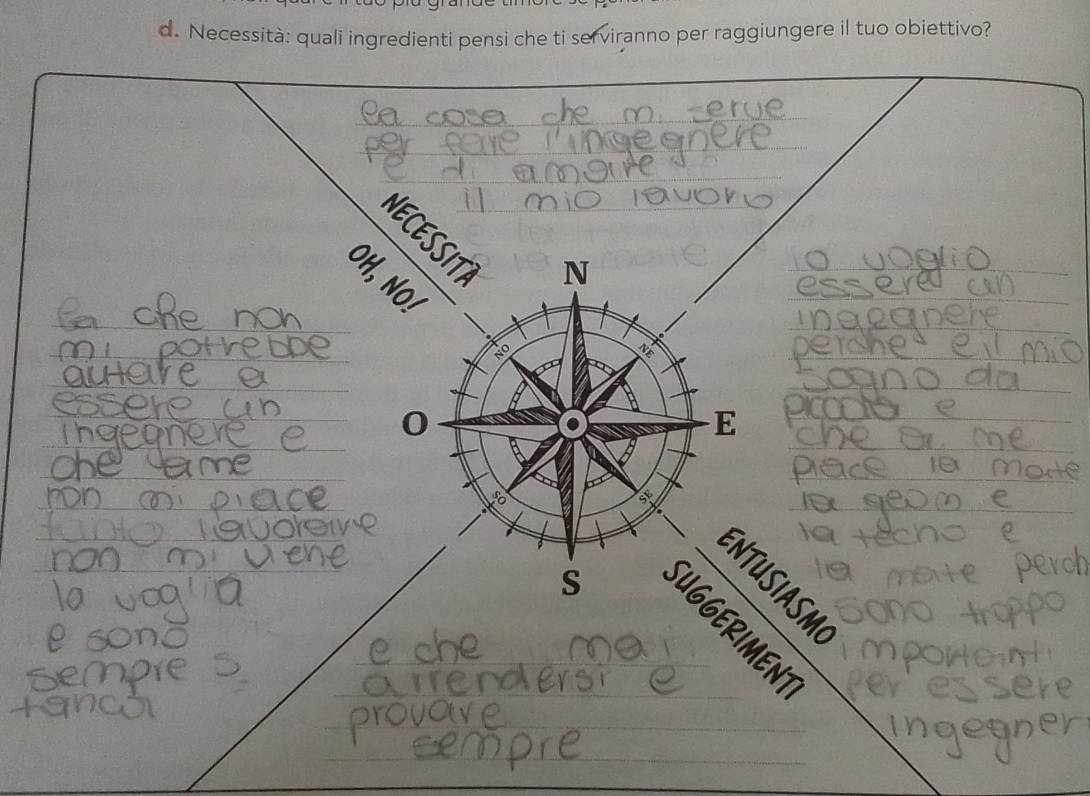 d. Necessità: quali ingredienti pensi che ti serviranno per raggiungere il tuo obiettivo?
ea cosa che mi serve
per fare l'ingegnere
e di amare
il mio lavoro
NECESSITÀ
OH, NO!
N
NO
NE
O
E
SO
SE
S
ENTUSIASMO
SUGGERIMENTI
ea che non
mi potrebbe
autare a
essere un
ingegnere e
che
non mi piace
tanto lavorare
non mi viene
la voglia
e sono
sempre s
tanca
io voglio
essere un
ingegnere
perche e il mio
sogno da
e
che a me
piace la mate
la geom e
la tecno e
la mate perch
sono troppo
importanti
per essere
ingegner
e che mai
arrendersi e
provare
sempre